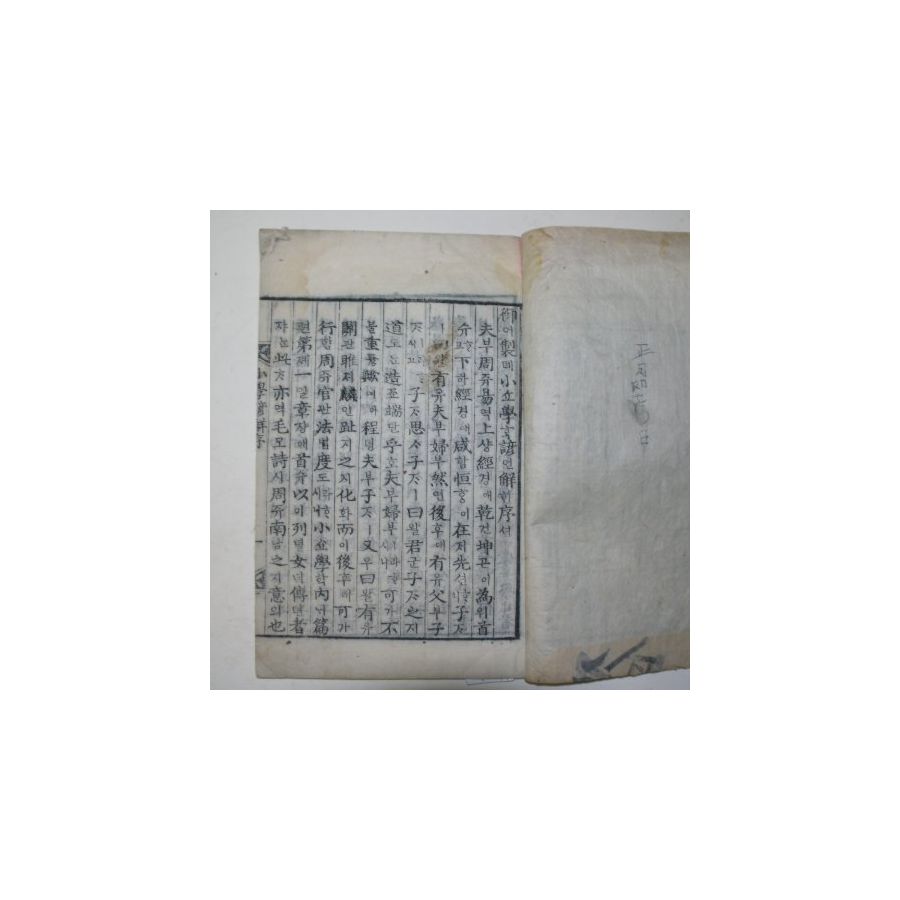 御어製졔小쇼學학諺언解ᄒᆡ序셔
夫부周쥬易역上샹經경애乾건坤곤이為위首
슈ᄒᆞ고下하經경애咸함恒ᄒᆞᆼ이在ᄌᆡ先션ᄒᆞ니子ᄌᆞ
有유夫부婦부然연後후에有유父부子
ᄌᆞㅣ라ᄒᆞ시고子ᄌᆞ思ᄉᆞ子ᄌᆞㅣ曰왈君군子ᄌᆞ之지
道도ᄂᆞᆫ造조端단乎호夫부婦부ㅣ라ᄒᆞ시니可가不
블重듕歟여아程뎡夫부子ᄌᆞㅣ又우曰왈有유
關관雎져麟인趾지之지化화而이後후에可가
行ᄒᆡᆼ周쥬官관法법度도ㅣ라ᄒᆞ시니小쇼學학內ᄂᆡ篇
편第뎨一일章쟝애首슈以이列녈女녀傳뎐者
쟈ᄂᆞᆫ此ᄎᆞ亦역毛모詩시周쥬南남之지意의也
小學諺解序